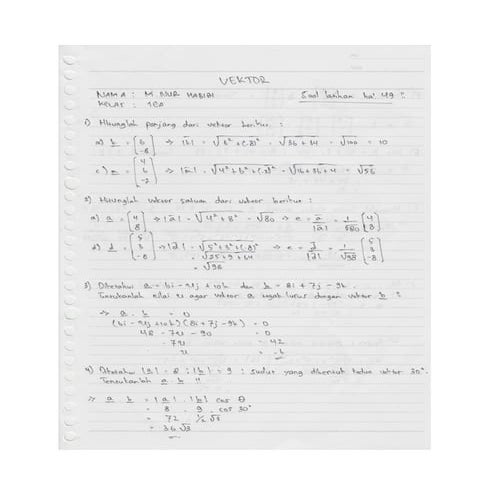 VEKTOR
NAMA : M. NUR HABIBI
Soal latihan hal 49 !!
KELAS : 10A
1) Hitunglah panjang dari vektor berikut :
a) b = (6 -8) => |b| = √6² + (-8)² = √36 + 64 = √100 = 10
c) a = (4 6 -2) => |a| = √4² + 6² + (-2)² = √16 + 36 + 4 = √56
2) Hitunglah vektor satuan dari vektor berikut :
a) a = (4 8) => |a| = √4² + 8² = √80 => e = a/|a| = 1/√80 (4 8)
d) d = (5 3 -8) => |d| = √5² + 3² + (-8)² => e = d/|d| = 1/√98 (5 3 -8)
= √25 + 9 + 64
= √98
3) Diketahui a = 6i - xj + 10k dan b = 8i + 7j - 9k.
Tentukanlah nilai x agar vektor a tegak lurus dengan vektor b !
=> a . b = 0
(6i - xj + 10k) (8i + 7j - 9k) = 0
48 - 7x - 90 = 0
-7x = 42
x = -6
4) Diketahui |a| = 8 ; |b| = 9 ; sudut yang dibentuk kedua vektor 30°.
Tentukanlah a . b !!
=> a . b = |a| . |b| cos θ
= 8 . 9 . cos 30°
= 72 1/2 √3
= 36 √3